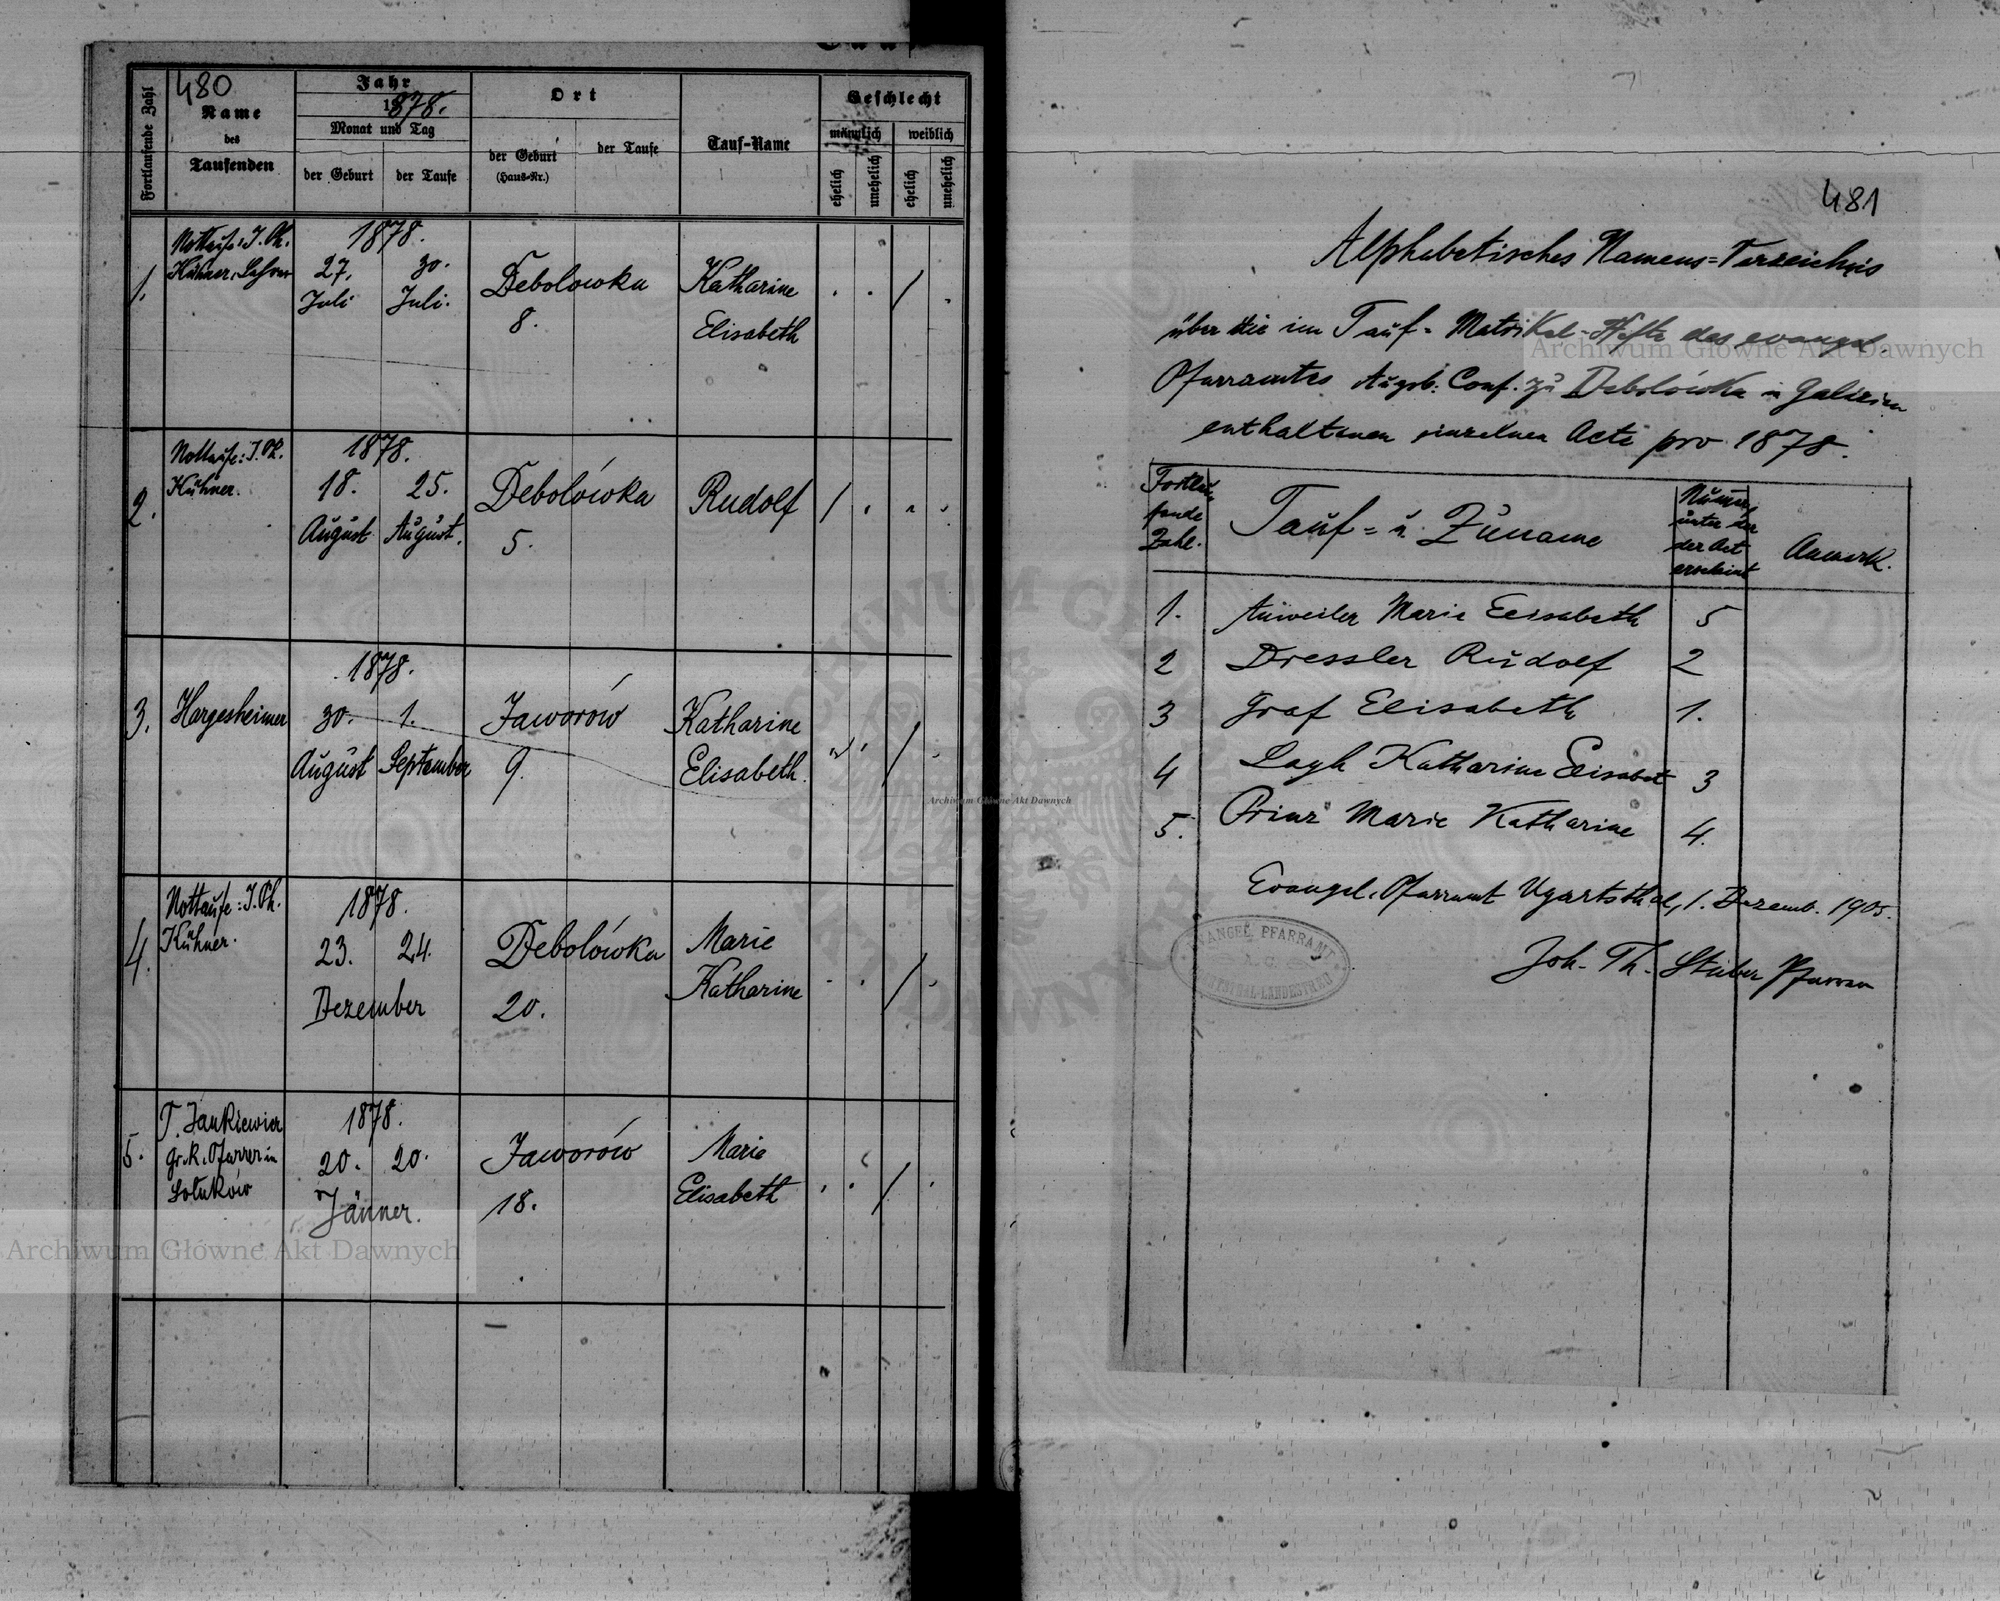 480
Fortlaufende Zahl
Name
des
Taufenden
Jahr
1878.
Monat und Tag
der Geburt
der Taufe
Ort
der Geburt
(Haus-Nr.)
der Taufe
Tauf-Name
Geschlecht
männlich
weiblich
ehelich
unehelich
ehelich
unehelich
1.
Nottaufe: J. Ph.
Kühner, Lehrer
1878.
27. 30.
Juli Juli.
Debolowka
8.
Katharine
Elisabeth
2.
Nottaufe: J. Ph.
Kühner.
1878.
18. 25.
August August.
Debolówka
5.
Rudolf
3.
Hargesheimer
1878.
30. 1.
August September
Jaworów
9.
Katharine
Elisabeth.
4.
Nottaufe: J. Ph.
Kühner.
1878.
23. 24.
Dezember
Debolówka
20.
Marie
Katharine
5.
T. Jankiewicz
gr. k. Pfarrer in
Solukow
1878.
20. 20.
Jänner.
Jaworów
18.
Marie
Elisabeth
481
Alphabetisches Namens=Verzeichnis
über die im Tauf- Matrikel-Hefte des evangel.
Pfarramtes Augsb. Conf. zu Debolówka in Galizien
enthaltenen einzelnen Acte pro 1878.
Fortlau-
fende
Zahl.
Tauf= u. Zuname
Numer
unter der
der Act
erscheint
Anmerk.
1. Auweiler Marie Elisabeth 5
2 Dressler Rudolf 2
3 Graf Elisabeth 1.
4 Katharine Elisabet 3
5. Prinz Marie Katharine 4.
Evangel. Pfarramt Ugartsthal, 1. Dezemb. 1905.
Joh. Th. Stuber Pfarrer
EVANGEL. PFARRAMT
A. C.
Archiwum Główne Akt Dawnych
Archiwum Główne Akt Dawnych
Archiwum Główne Akt Dawnych